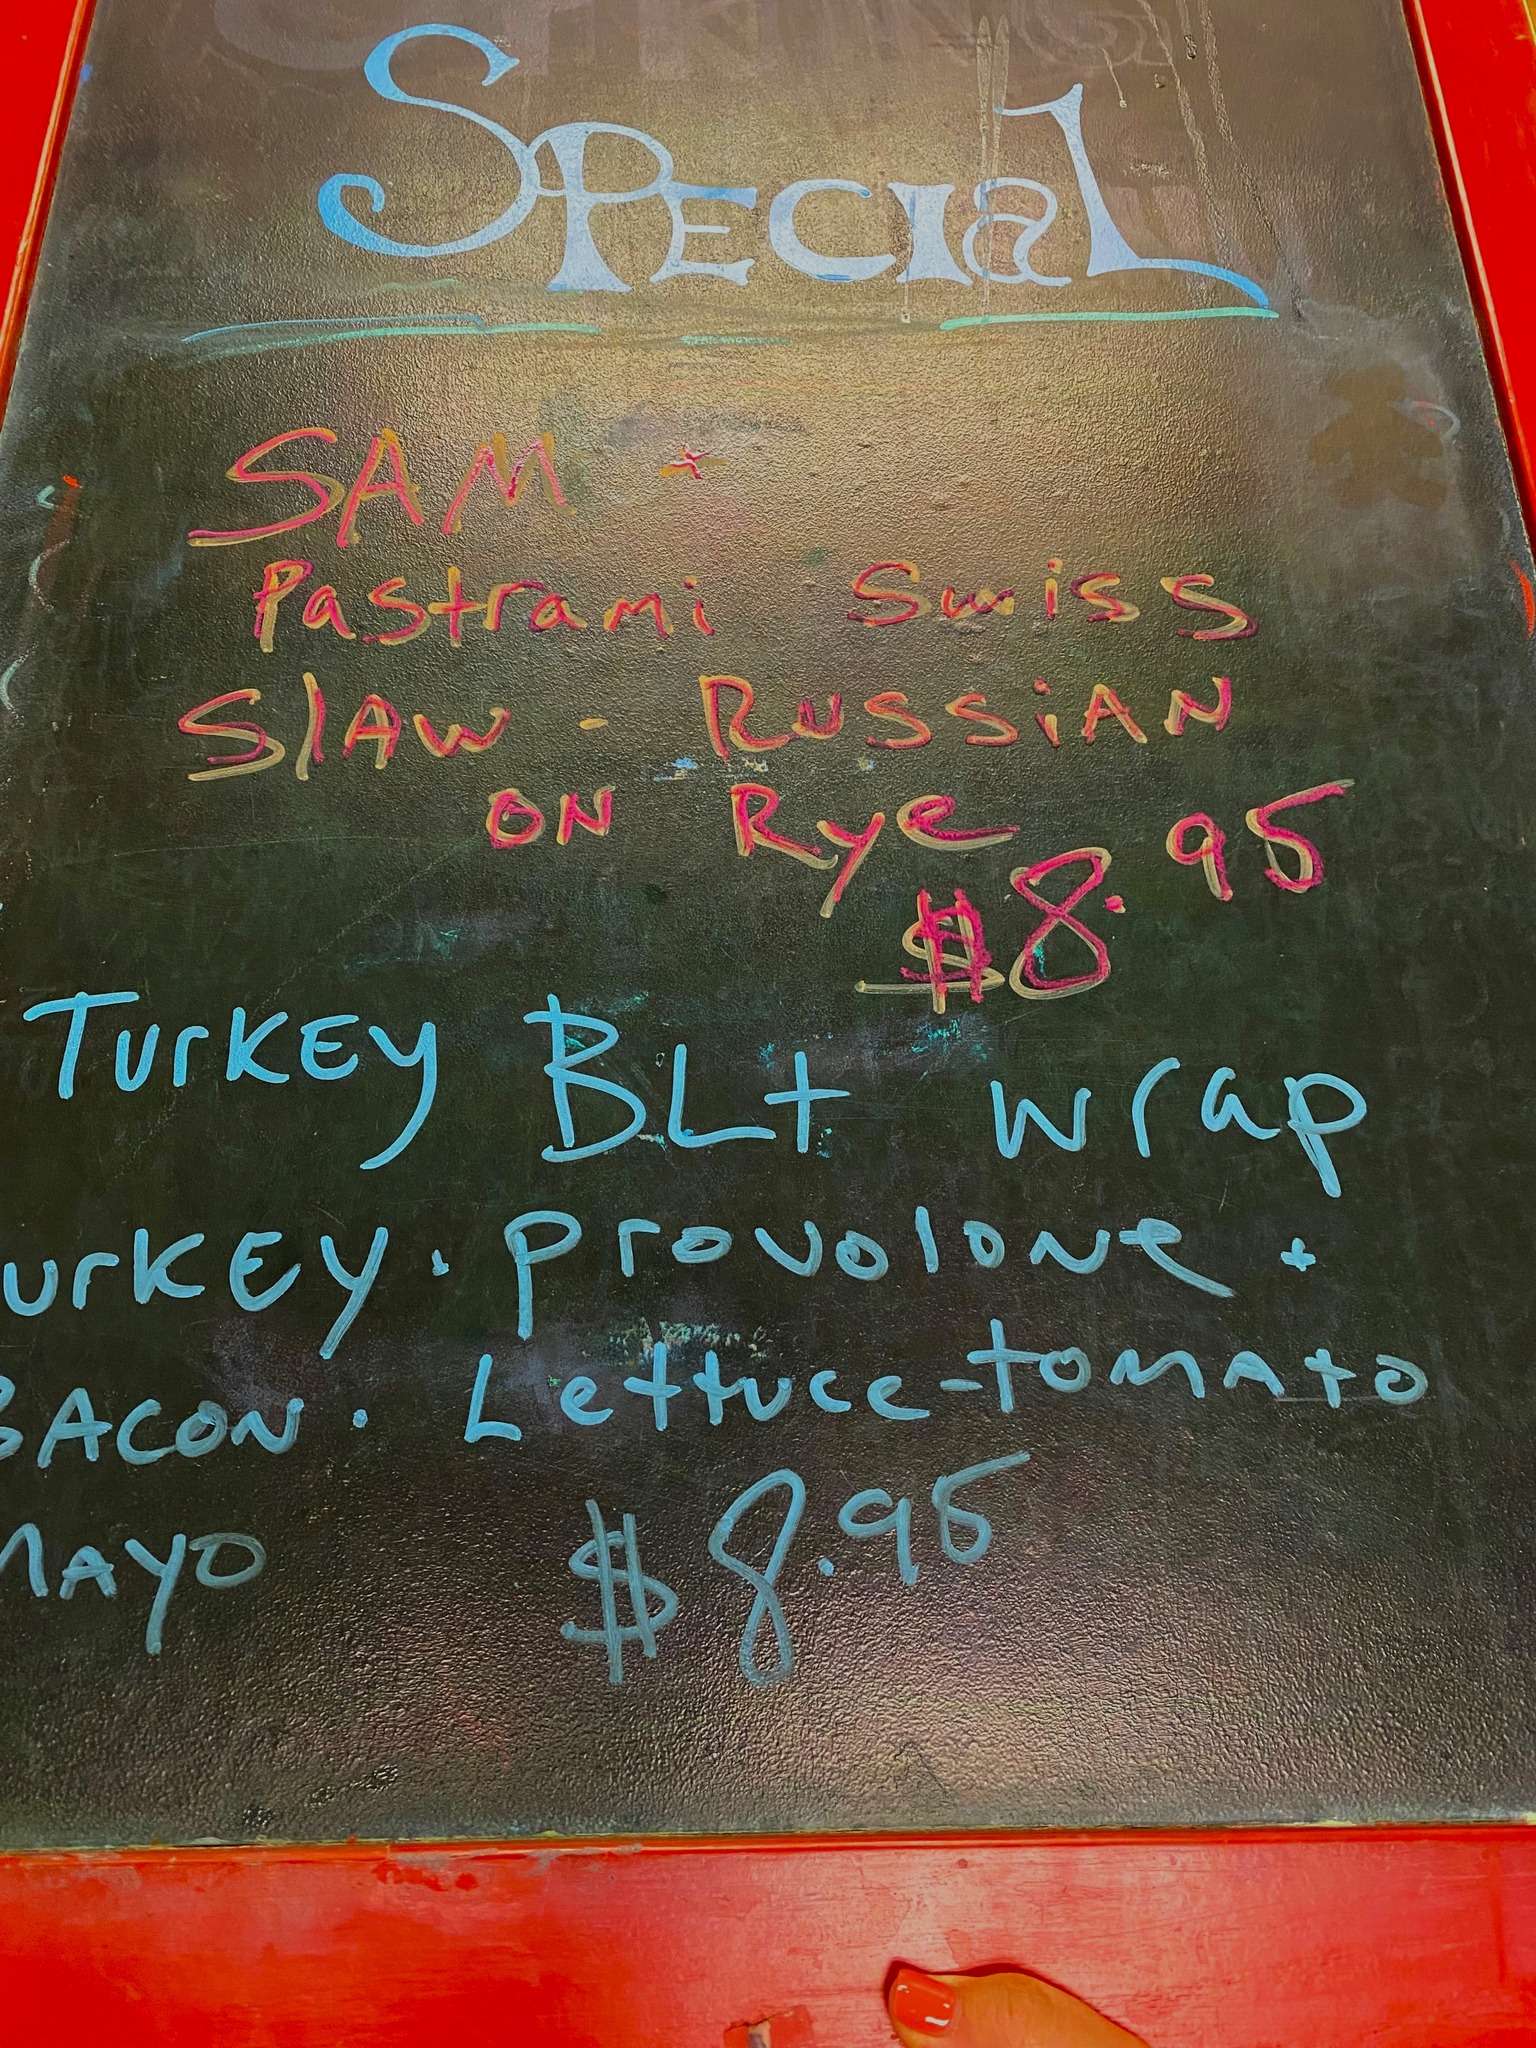 SPECIAL
SAM *
Pastrami Swiss
SlAW - RUSSiAN
ON Rye
$8.95
TurKEY BLt wrap
urKEY · provolone ·
BACON · Lettuce-tomAto
MAYO $8.95